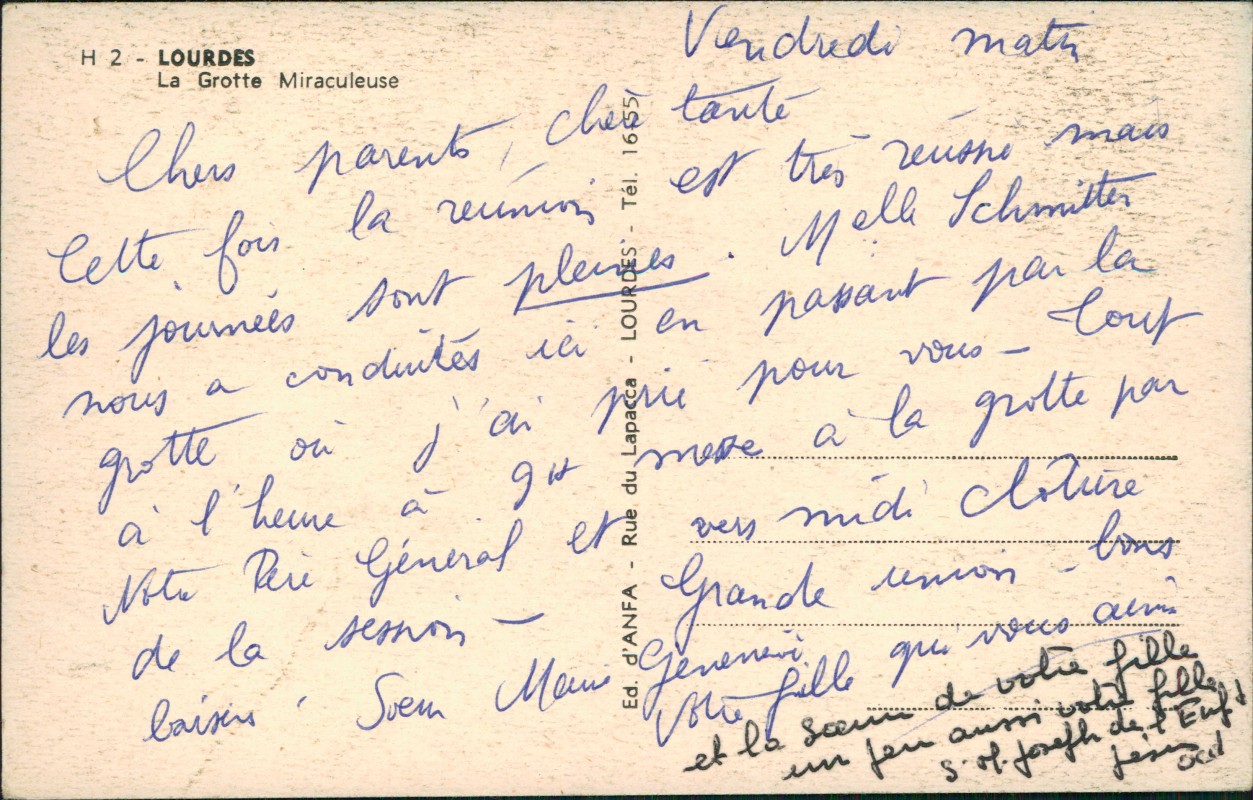 H 2 - LOURDES
La Grotte Miraculeuse
Vendredi matin
Chers parents, chère tante
Cette fois la réunion est très réussie mais
les journées sont pleines. Melle Schmitter
nous a conduites ici en passant par la
grotte où j'ai prié pour vous - Tout
à l'heure à 9H messe à la grotte par
Notre Père Général et vers midi clôture
de la session - Grande union - bons
baisers. Soeur Marie Geneviève
Votre fille qui vous aime
et la Soeur de votre fille
un peu aussi votre fille,
S. M. Joseph de l'Enft
Jésus
ocd
Ed. d'ANFA - Rue du Lapacca - LOURDES - Tél. 16-55